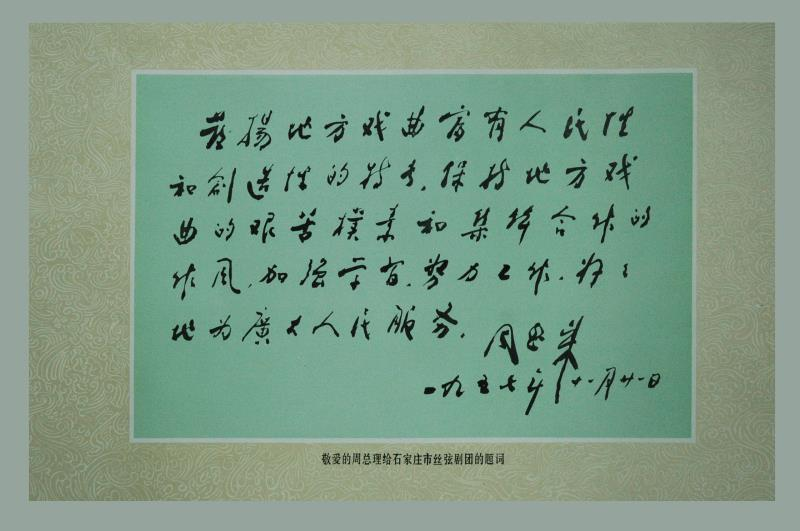 发揚地方戏曲富有人民性
和創造性的特长，保持地方戏
曲的艰苦樸素和集体合作的
作风，加强学习，努力工作，好好
地为廣大人民服务。
周恩来
一九五七年十一月廿一日
敬爱的周总理给石家庄市丝弦剧团的题词